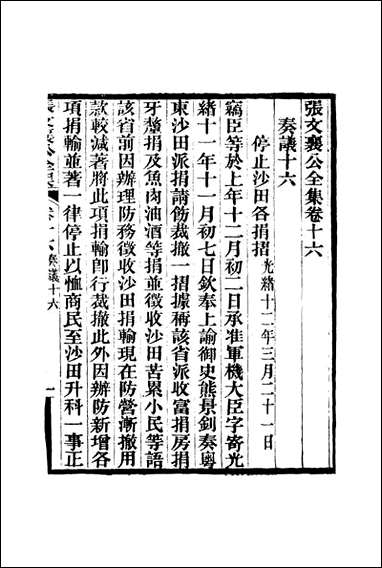 張文襄公全集卷十六
奏議十六
停止沙田各捐摺光緒十二年三月二十一日
竊臣等於上年十二月初二日承准軍機大臣字寄光
緒十一年十一月初七日欽奉上諭御史熊景釗奏粵
東沙田派捐請飭裁撤一摺據稱該省派收富捐房捐
牙釐捐及魚肉油酒等捐並徵收沙田苦累小民等語
該省前因辦理防務徵收沙田捐輸現在防營漸撤用
款較減著將此項捐輸卽行裁撤此外因辦防新增各
項捐輸並著一律停止以恤商民至沙田升科一事正
張文襄公全集
卷十六奏議十六
一